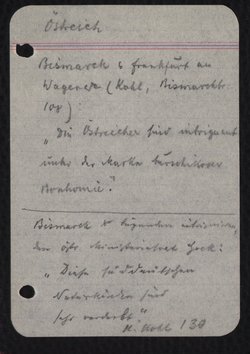 Östreich
Bismarck s Frankfurt an
Wagener (Kohl, Bismarckbr.
108)
"Die Östreicher sind intriguant
unter der Maske burschikoser
Bonhomie".
Bismarck
den östr. Ministerialrat Hock:
"Diese süddeutschen
Naturkinder sind
sehr verderbt"
H. Kohl 130